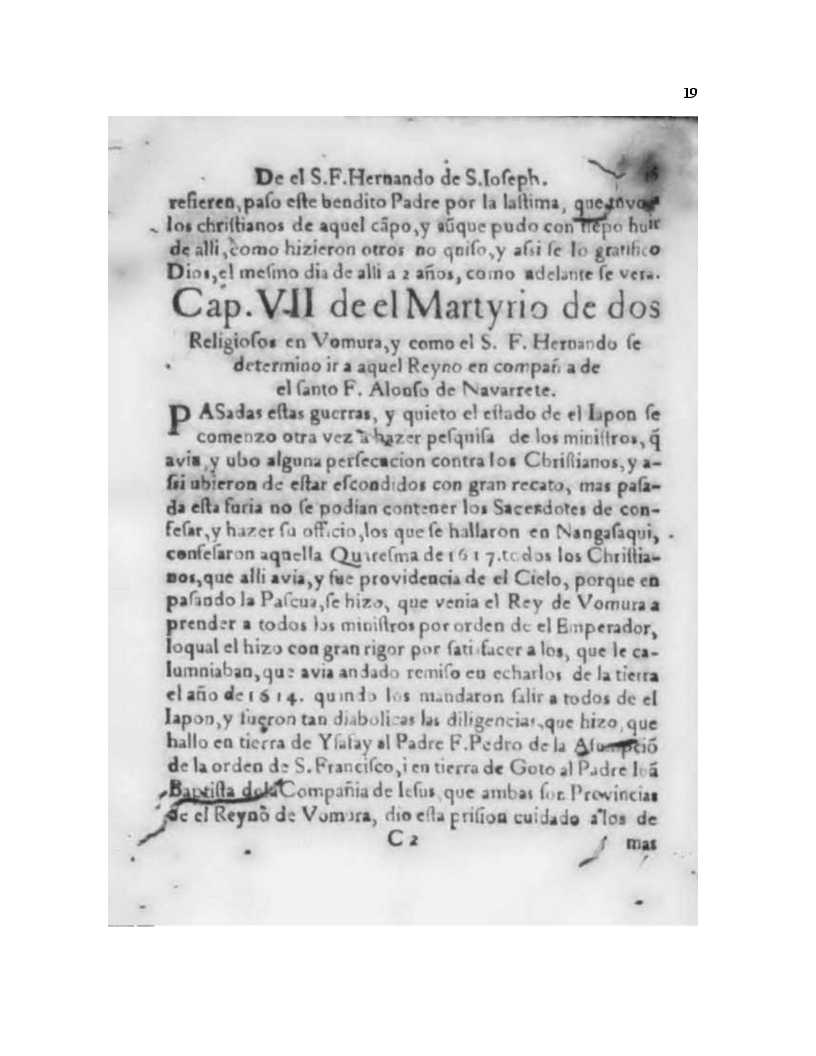 19
De el S.F.Hernando de S.Ioſeph.
refieren,paſo eſte bendito Padre por la laſtima, que tuvo a
los chriſtianos de aquel cãpo,y aũque pudo con tiẽpo huir
de alli,como hizieron otros no quiſo,y aſsi ſe lo gratifico
Dios,el meſmo dia de alli a 2 años, como adelante ſe vera.
Cap. VII de el Martyrio de dos
Religioſos en Vomura,y como el S. F. Hernando ſe
determino ir a aquel Reyno en compañia de
el ſanto F. Alonſo de Navarrete.
PASadas eſtas guerras, y quieto el eſtado de el Iapon ſe
comenzo otra vez a hazer peſquiſa de los miniſtros, q̃
avia,y ubo alguna perſecacion contra los Chriſtianos,y a-
ſsi ubieron de eſtar eſcondidos con gran recato, mas paſa-
da eſta furia no ſe podian contener los Sacerdotes de con-
feſar,y hazer ſu officio,los que ſe hallaron en Nangaſaqui,
confeſaron aquella Quareſma de 1617.todos los Chriſtia-
nos,que alli avia,y fue providencia de el Cielo, porque en
paſando la Paſcua,ſe hizo, que venia el Rey de Vomura a
prender a todos los miniſtros por orden de el Emperador,
loqual el hizo con gran rigor por ſatisfacer a los, que le ca-
lumniaban,que avia andado remiſo en echarlos de la tierra
el año de 1614. quando los mandaron ſalir a todos de el
Iapon,y fueron tan diabolicas las diligencias,que hizo,que
hallo en tierra de Yſafay al Padre F.Pedro de la Aſumpciõ
de la orden de S. Franciſco,i en tierra de Goto al Padre Iuã
Baptiſta de la Compañia de Ieſus,que ambas ſon Provincias
de el Reyno de Vomura, dio eſta priſion cuidado a los de
C 2
mas